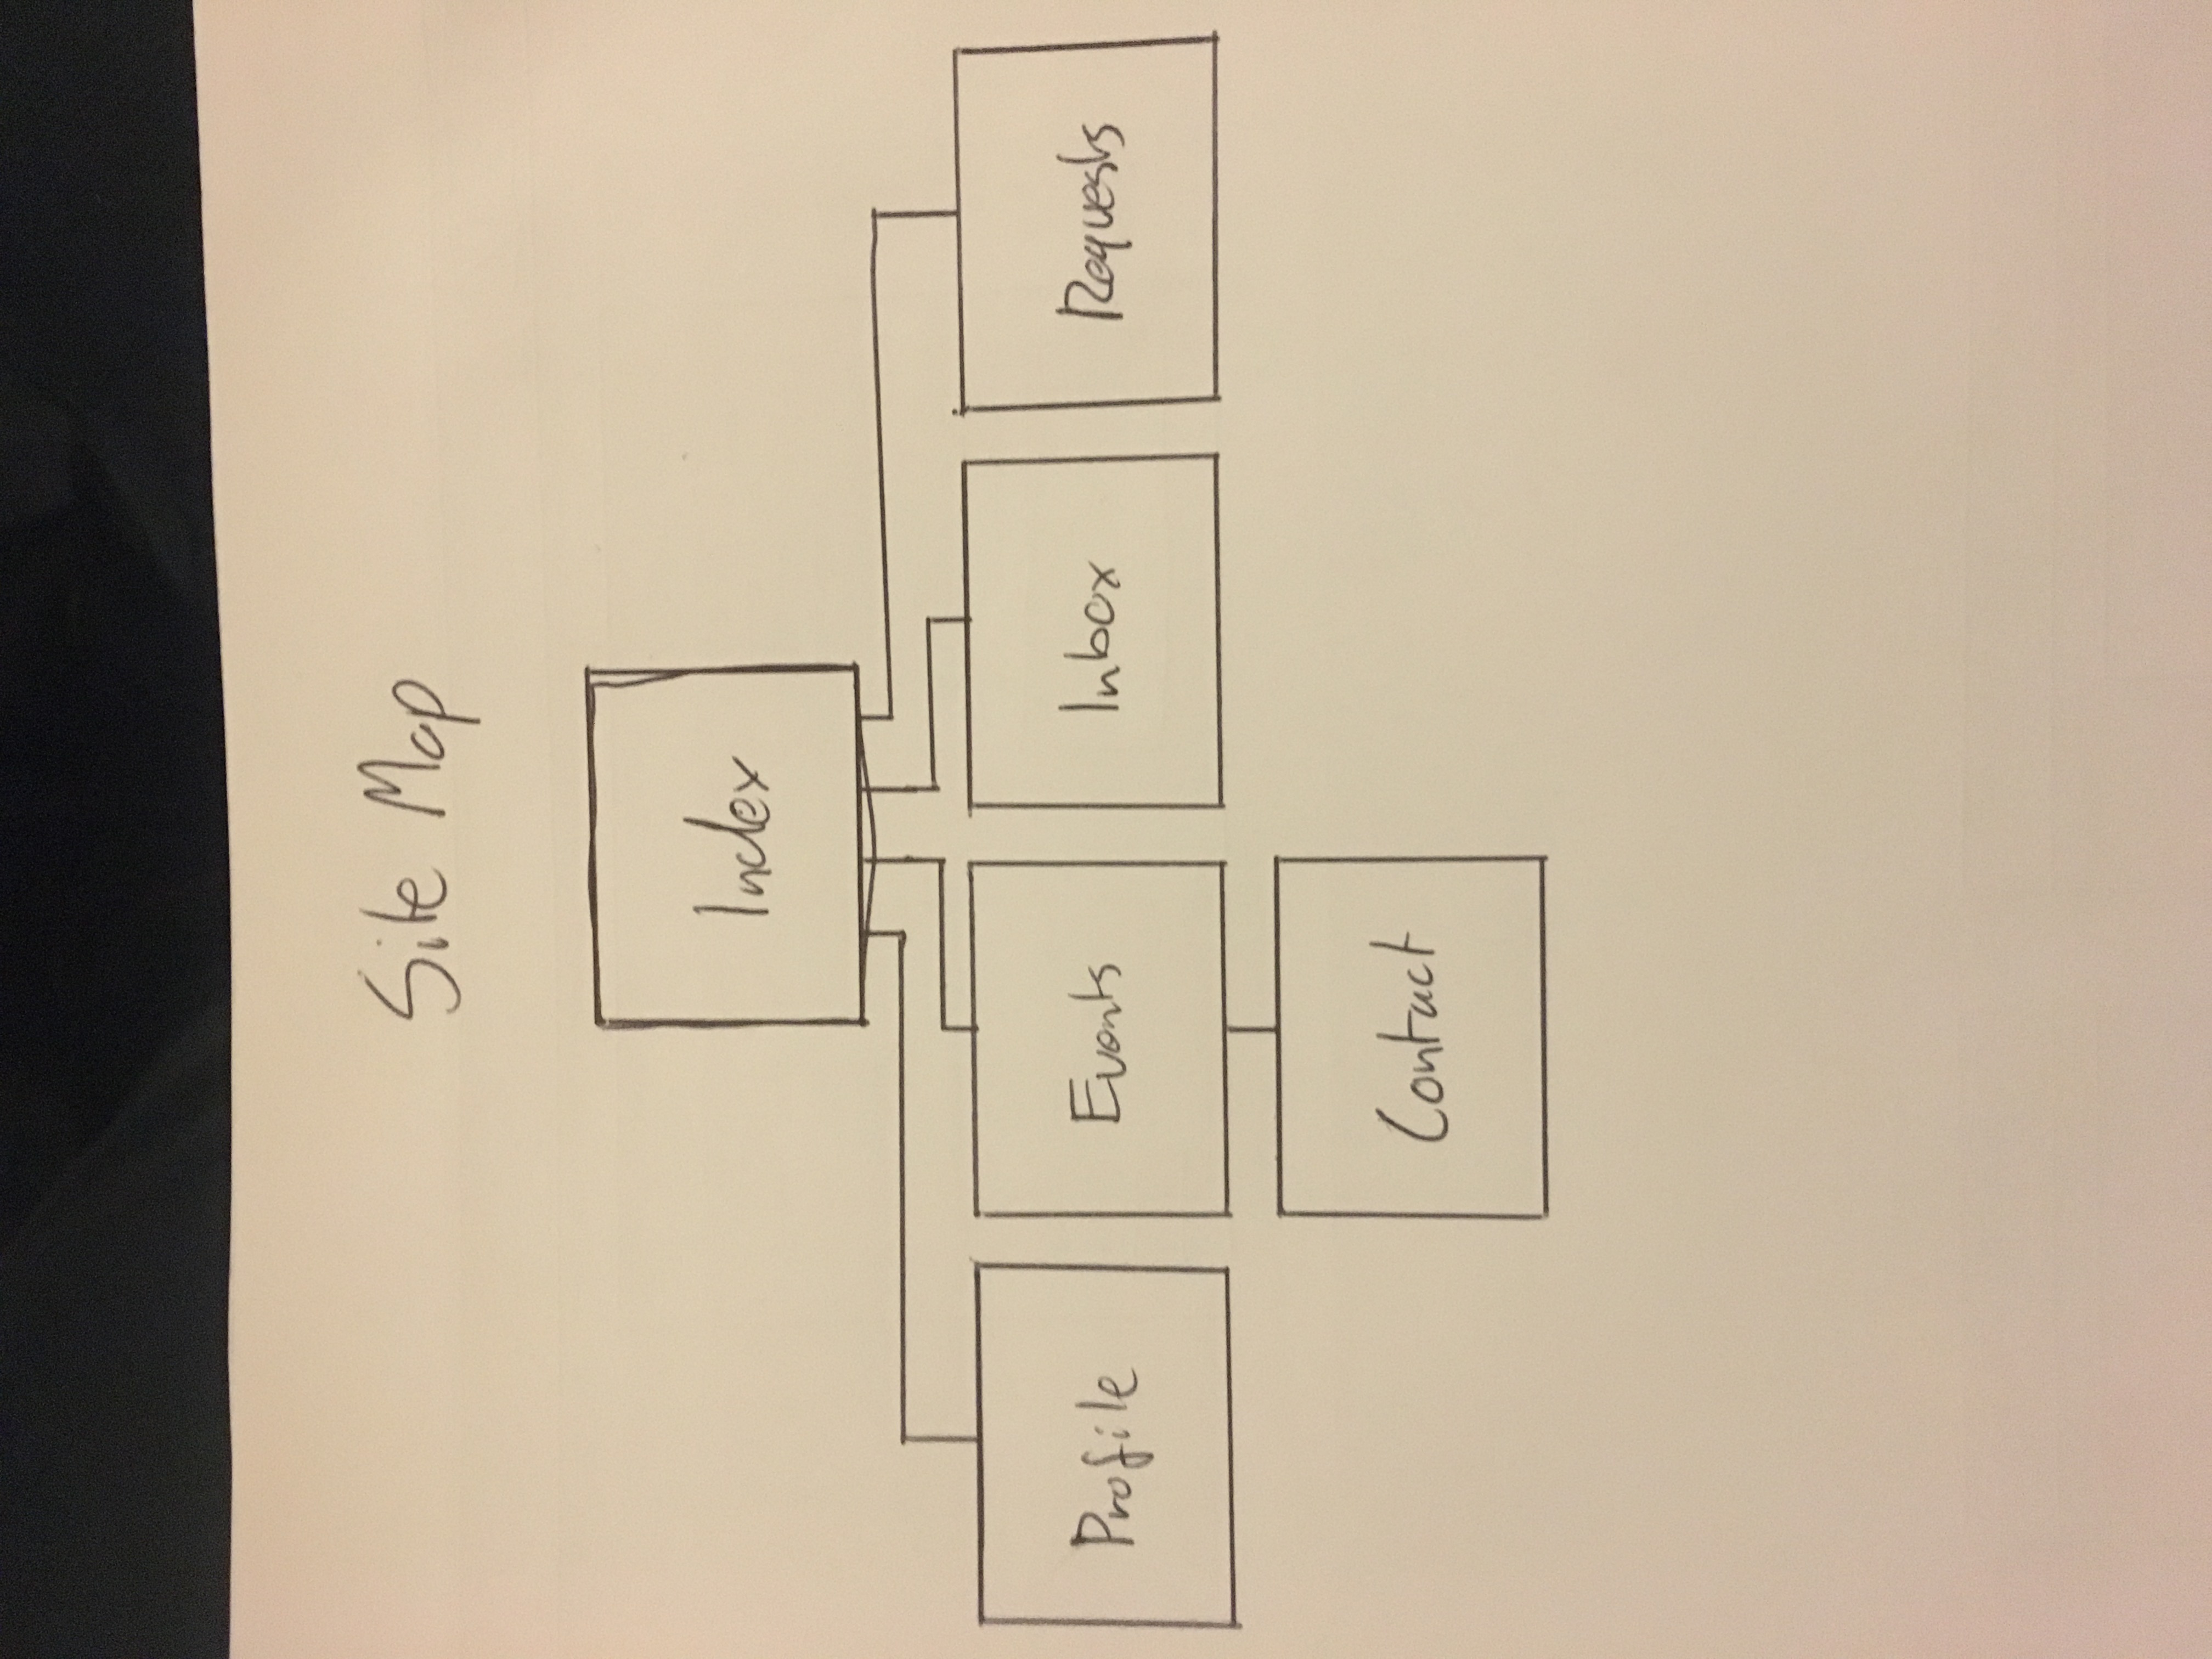 Site Map
Index
Profile
Events
Inbox
Requests
Contact